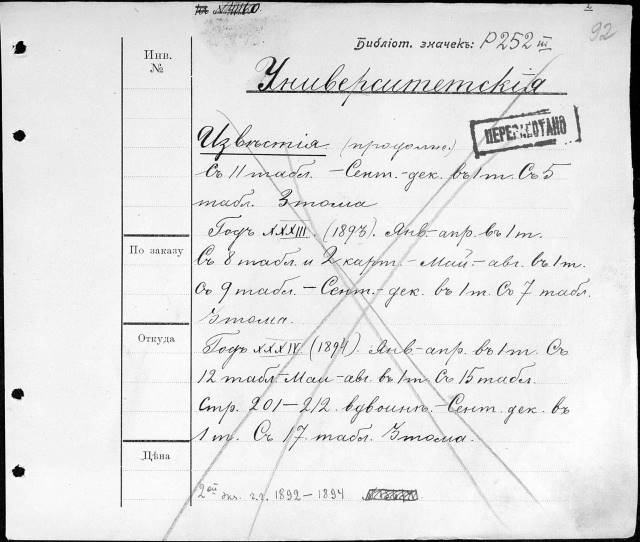 92
Библіот. значекъ: P252 III
Инв.
№
Университетскія
ПЕРЕРАБОТАНО
Извѣстія (продолж.)
Съ 11 табл. – Сент.-дек. въ 1 т. Съ 5
табл. 3 тома
Годъ XXXIII. (1893). Янв-апр. въ 1 т.
По заказу
Съ 8 табл. и 2 карт. – Май.– авг. въ 1 т.
Съ 9 табл. – Сент.- дек. въ 1 т. Съ 7 табл.
3 тома.
Откуда
Годъ XXXIV (1894). Янв-апр. въ 1 т. Съ
12 табл-Май-авг. въ 1 т. Съ 15 табл.
Стр. 201–212. вдвойнѣ.–Сент. дек. въ
1 т. Съ 17 табл. 3 тома.
Цѣна
2ой экз. г.г. 1892–1894